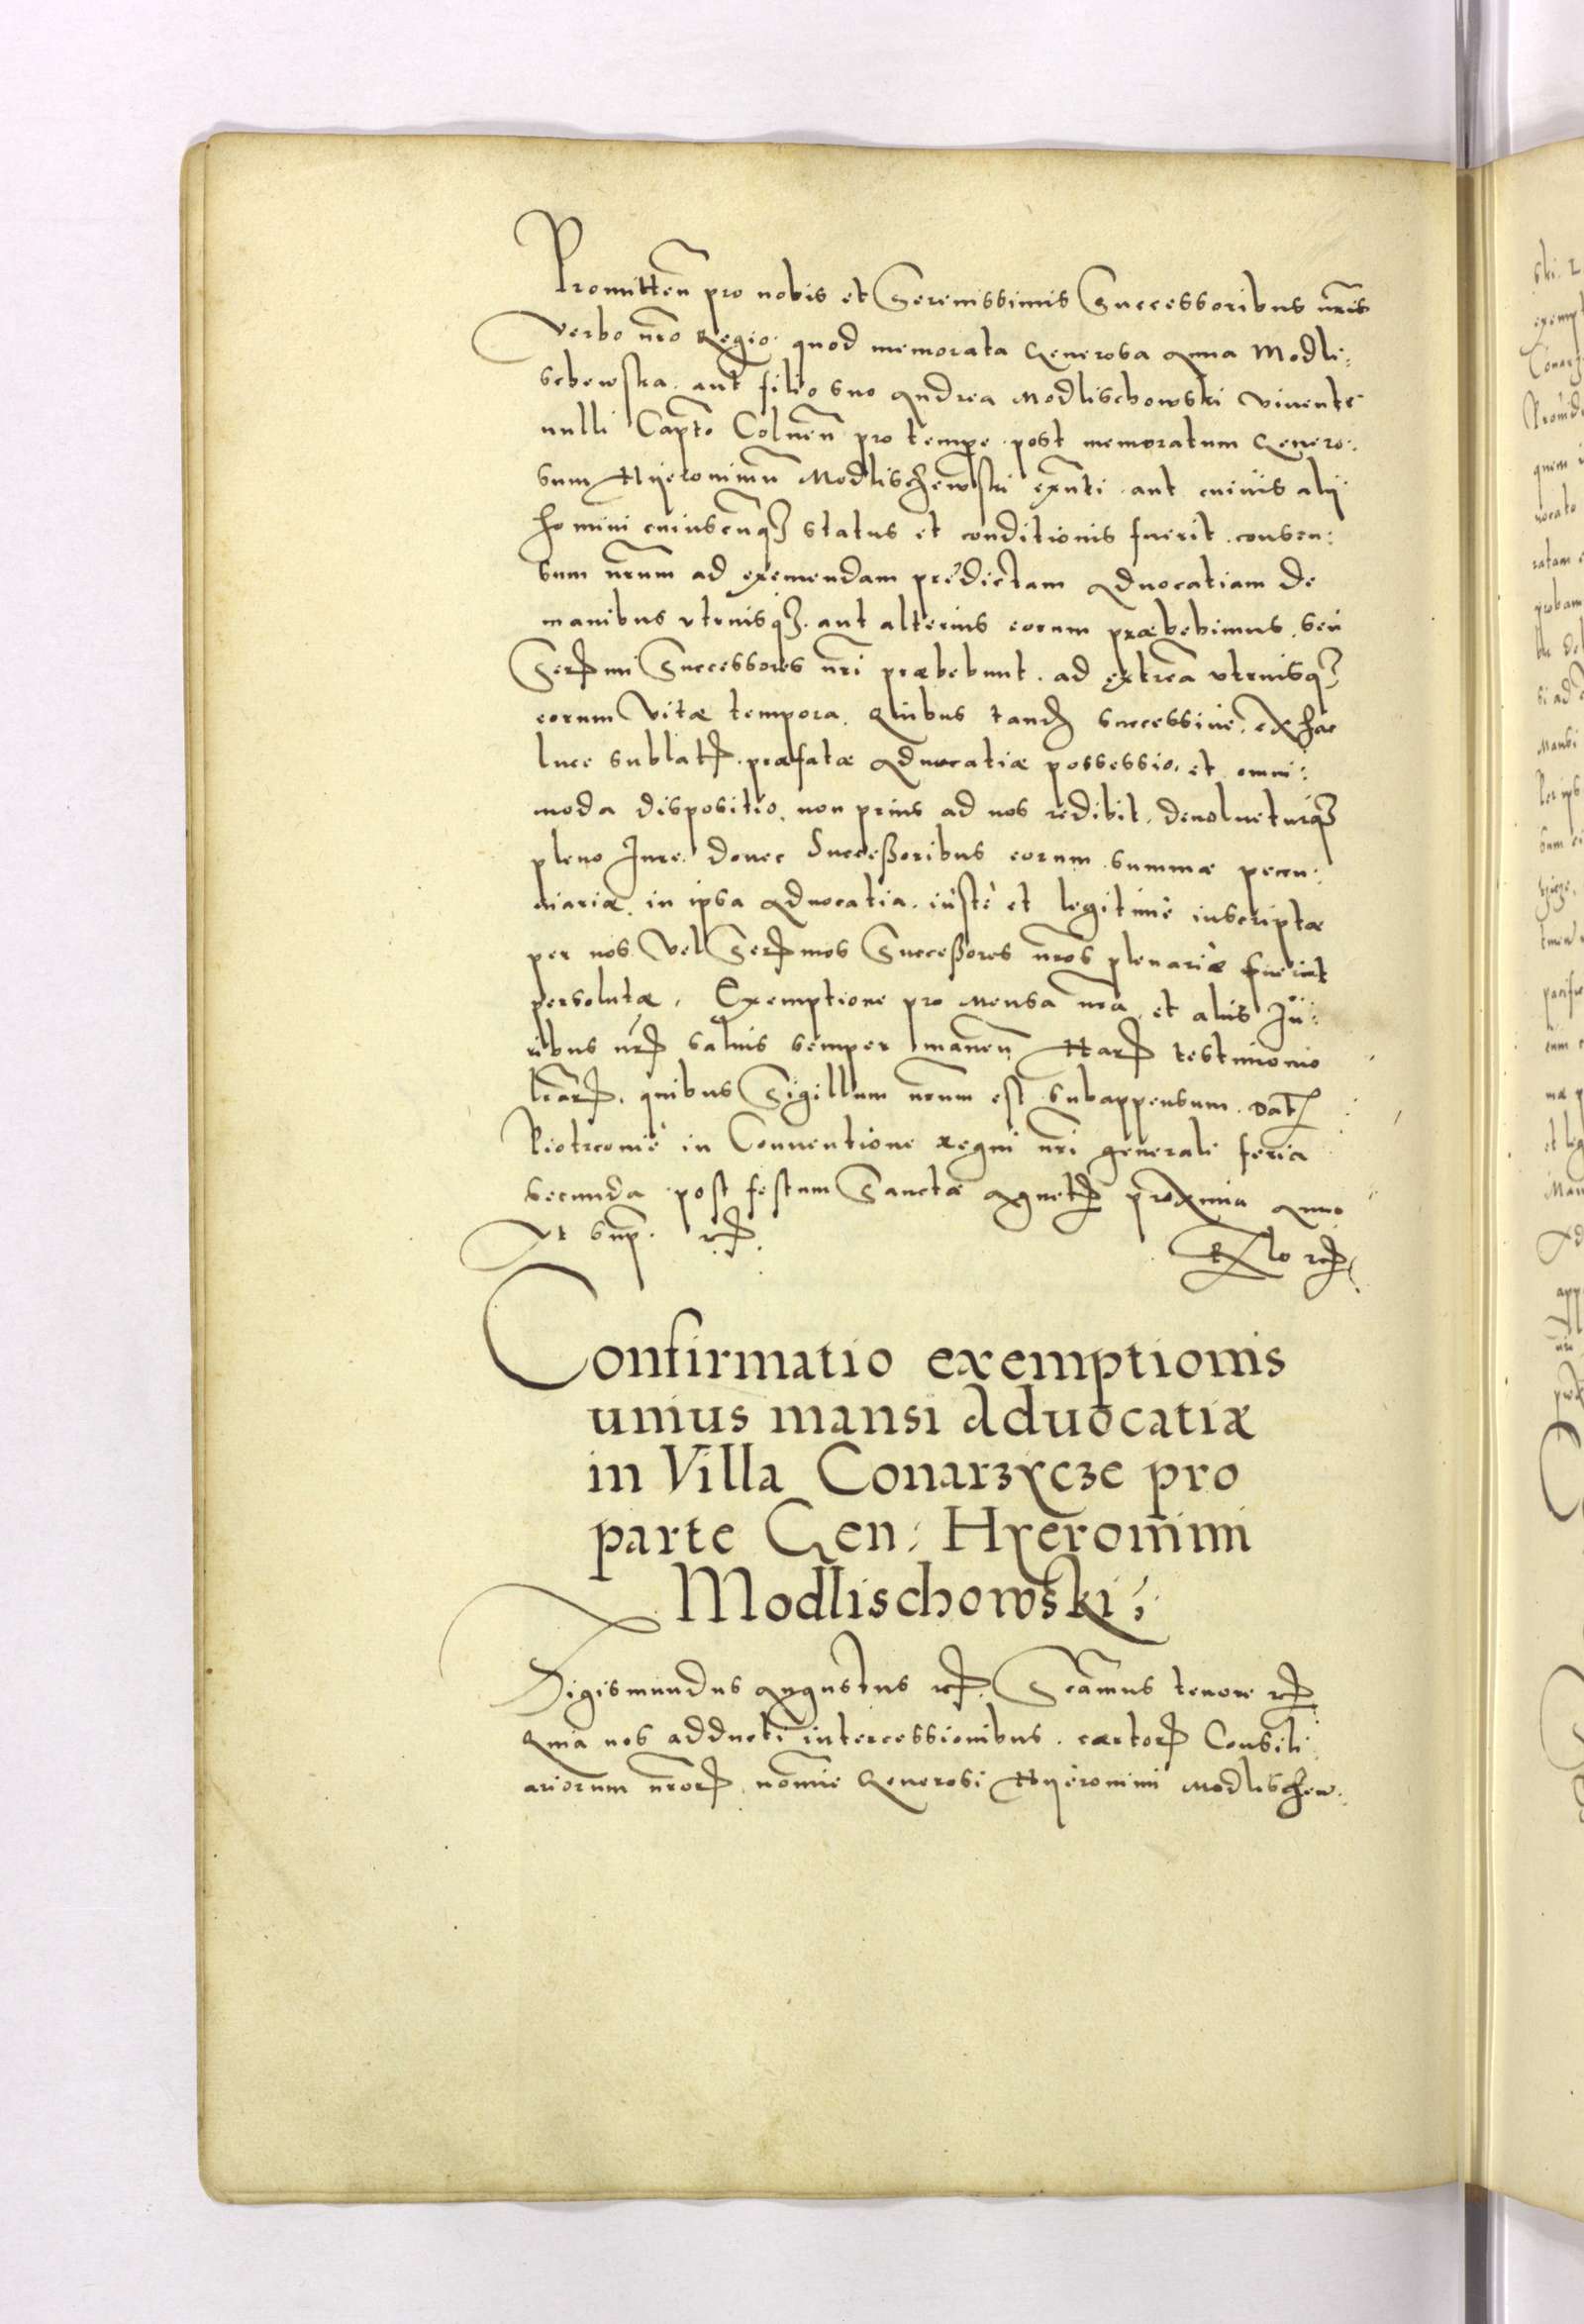 Promitteñ pro nobis et Serenissimis Successoribus nr̃is
verbo nr̃o Regio. quod memorata Generosa Anna Modli:
schewska. aut filio suo Andrea Modlischowski viuente
nulli Capto Colneñ pro tempe. post memoratum Genero:
sum Hÿeronimũ Modlischewski exñti. aut cuiuis alÿ
homini cuiuscũq3 status et conditionis fuerit. consen:
sum nr̃um ad exemendam predictam Aduocatiam de
manibus vtriusq3. aut alterius eorum præbebimus. seu
Sermi Successores nr̃i præbebunt. ad extrea vtriusq3
eorum vitæ tempora. Quibus tand3 successiue. ex hac
luce sublatꝭ. præfatæ Aduocatiæ possessio. et omni:
moda dispositio. non prius ad nos redibit. deuolueturq3
pleno Iure. donec Succeßoribus eorum summæ pecu:
niariæ. in ipsa Aduocatia. iustè et legitimè inscriptæ
per nos vel Sermos Succeßores nr̃os plenariæ fuerint
persolutæ. Exemptione pro Mensa nr̃a. et aliis Iu:
ribus nr̃ꝭ saluis semper maneñ Harꝭ testimonio
lr̃arꝭ. quibus Sigillum nr̃um est subappensum. Datꝭ
Piotrconiè in Conuentione regni nr̃i generali feria
secunda post festum Sanctæ Agnetꝭ proxima Anno
Vt sup. rꝭ.
R͠lo rcꝭ
Confirmatio exemptionis
unius mansi aduocatiæ
in Villa Conarzycze pro
parte Gen: Hyeronimi
Modlischowski;
Sigismundus Augustus rcꝭ. Sc̃amus tenore rcꝭ
Quia nos adducti intercessionibus. cærtorꝭ Consili
ariorum nr̃orꝭ. nomĩe Generosi Hÿeronimi Modlischew: